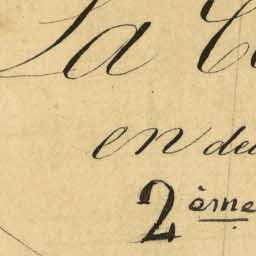 La C
en deu
2ème